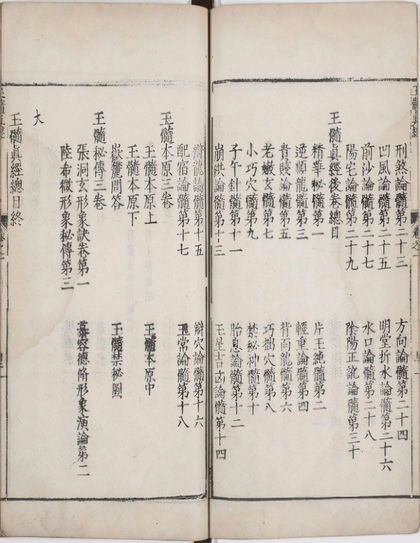 刑煞論髓第二十三 方向論髓第二十四
凹風論髓第二十五 明堂折水論髓第二十六
前沙論髓第二十七 水口論髓第二十八
陽宅論髓第二十九 陰陽正訛論髓第三十
玉髓眞經後卷總目
精華秘髓第一 片玉純髓第二
逆順龍髓第三 輕重論髓第四
貴賤論髓第五 背面龍髓第六
老嫩玄髓第七 巧拙穴髓第八
小巧穴髓第九 禁秘神髓第十
子午針髓第十一 胎息論髓第十二
崩洪論髓第十三 玉星吉凶論髓第十四
辯龍論髓第十五 辯穴論髓第十六
配宿論髓第十七 玉常論髓第十八
玉髓本原三卷
玉髓本原上 玉髓本原中
玉髓本原下
嶽麓問答 玉髓禁秘圖
玉髓秘傳三卷
張洞玄形象訣卷第一
蔡德脩形象演論第二
陸希獻形象秘傳第三
大
玉髓眞經總目終